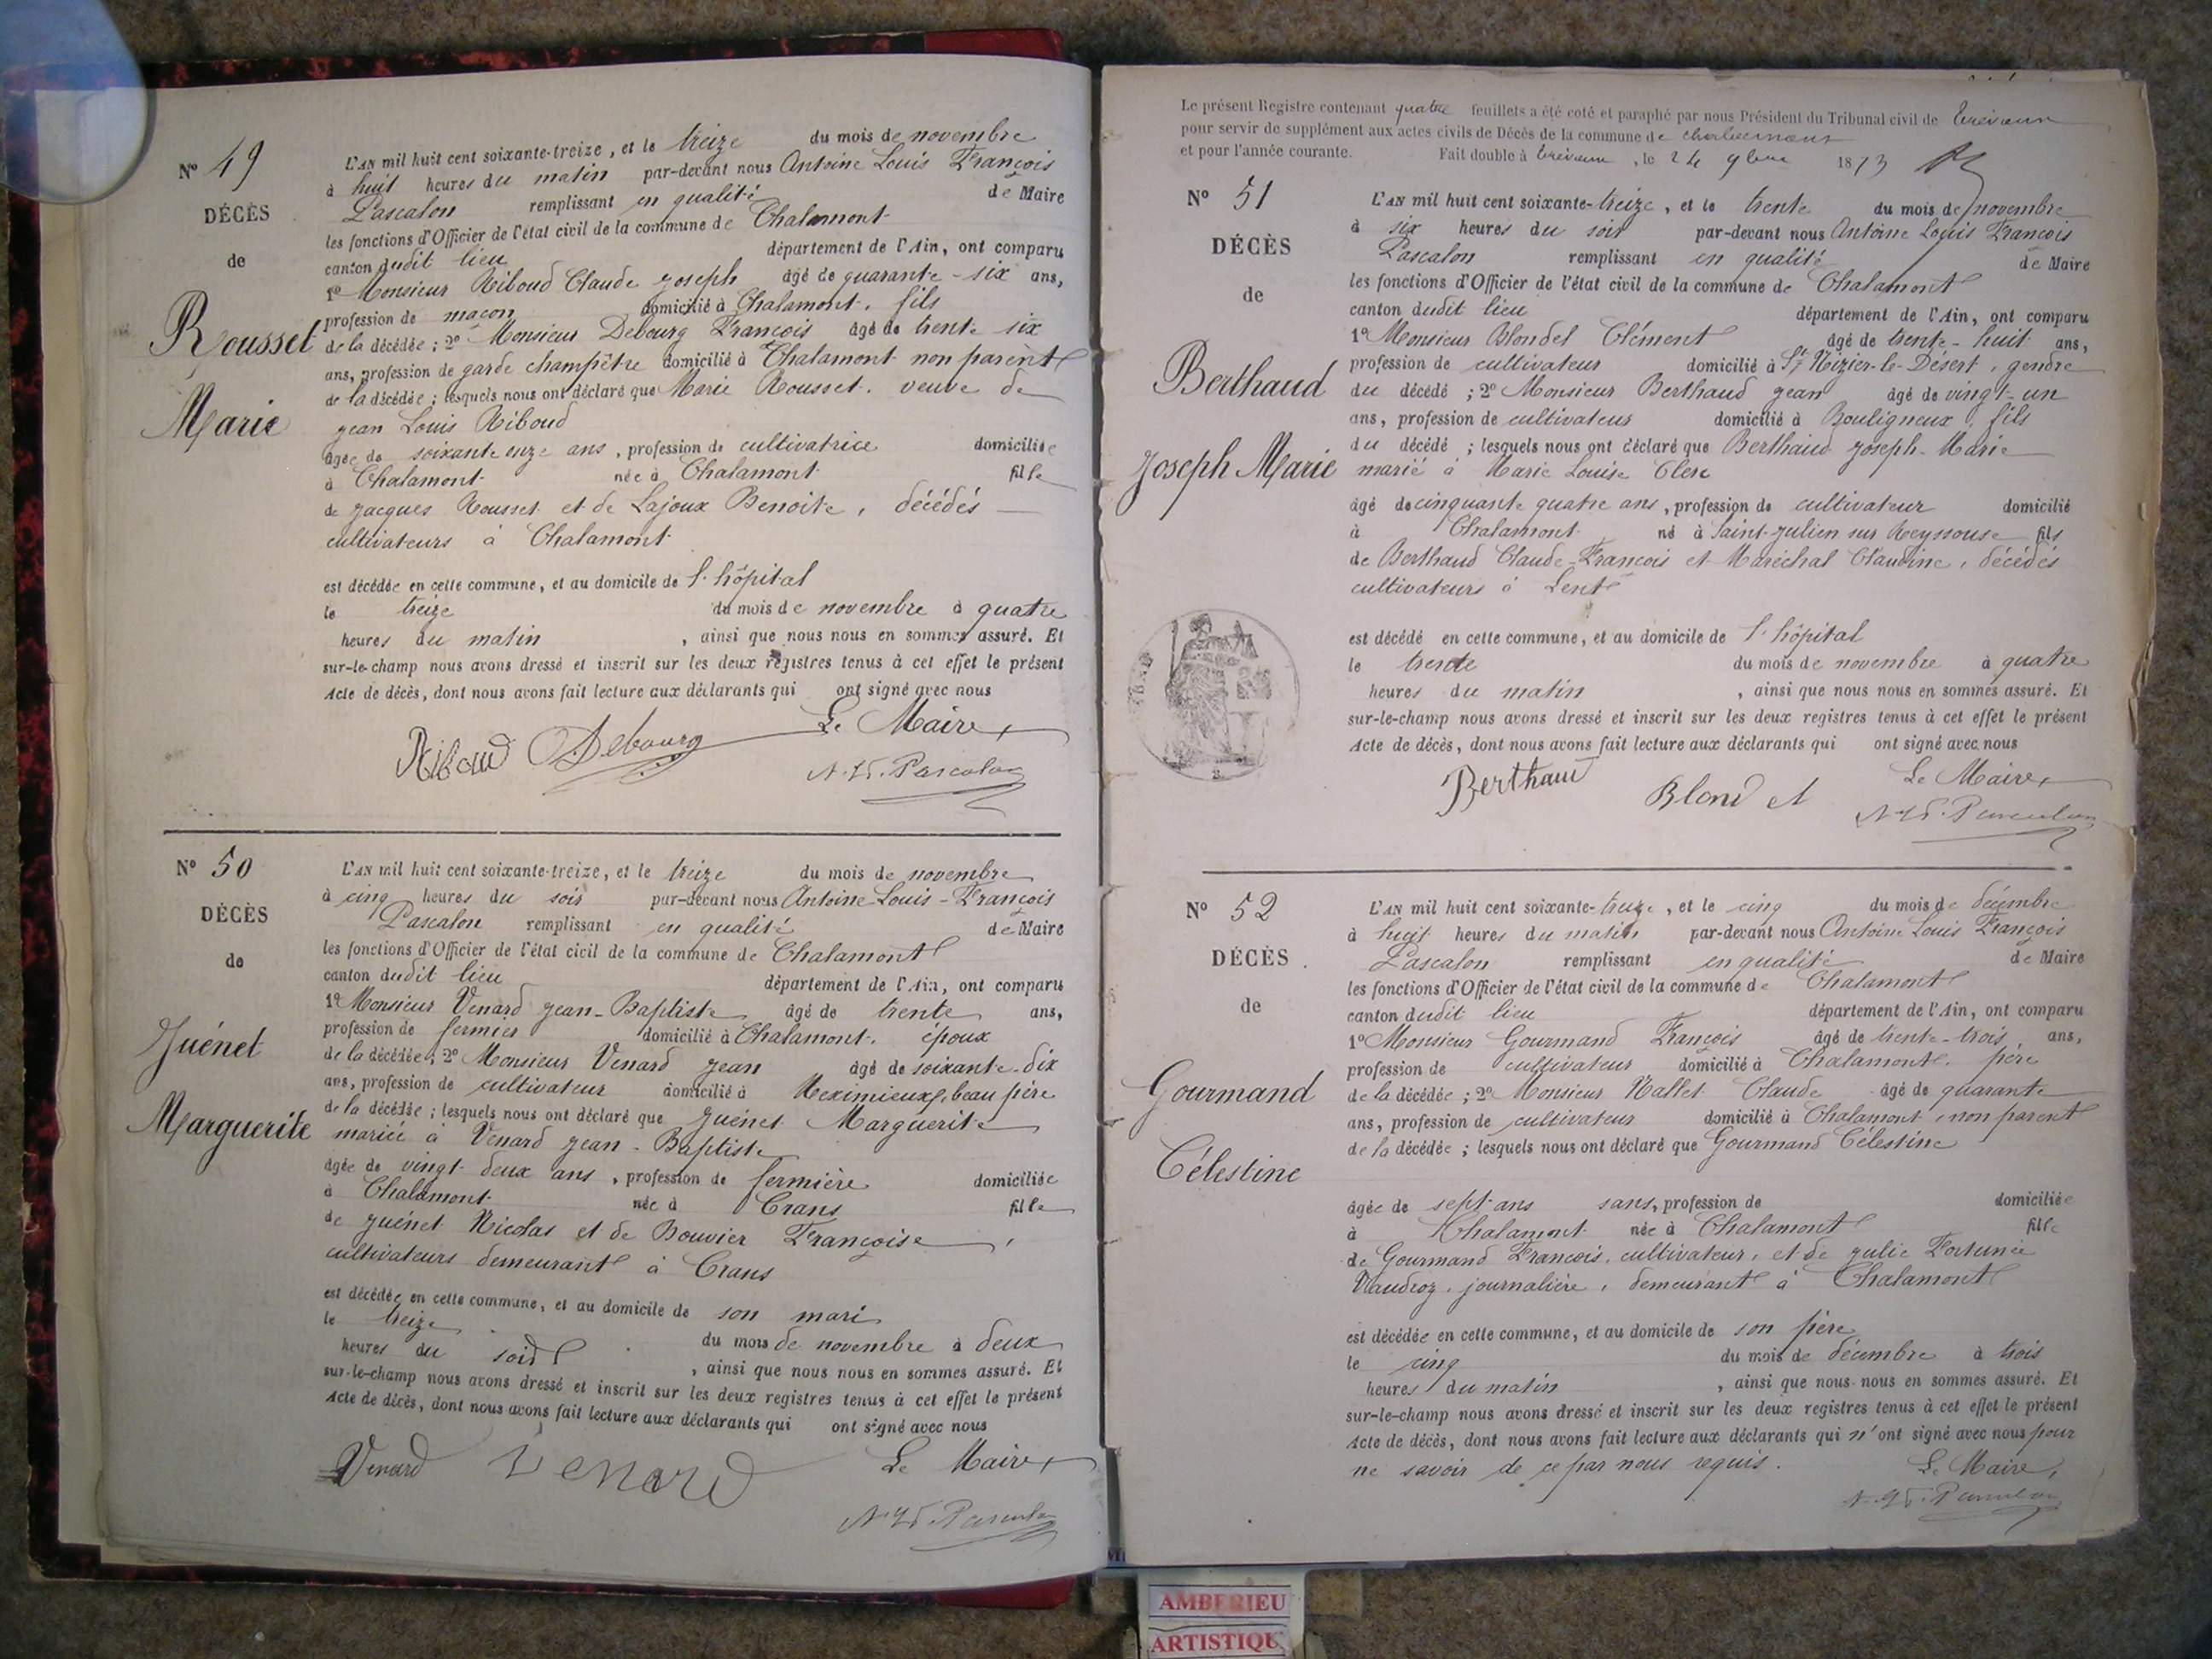 Nº 49
DÉCÈS
de
Rousset
Marie
L'AN mil huit cent soixante-treize, et le treize du mois de novembre
à huit heures du matin par-devant nous Antoine Louis François
Pascalon remplissant en qualité de Maire
les fonctions d'Officier de l'état civil de la commune de Chalamont
canton dudit lieu département de l'Ain, ont comparu
1º Monsieur Riboud Claude Joseph âgé de quarante-six ans,
profession de maçon domicilié à Chalamont, fils
de la décédée ; 2º Monsieur Debourg François âgé de trente six
ans, profession de garde champêtre domicilié à Chalamont non parent
de la décédée ; lesquels nous ont déclaré que Marie Rousset, veuve de
Jean Louis Riboud
âgée de soixante onze ans, profession de cultivatrice domiciliée
à Chalamont née à Chalamont fille
de Jacques Rousset et de Lajoux Benoite, décédés
cultivateurs à Chalamont
est décédée en cette commune, et au domicile de l'hôpital
le treize du mois de novembre à quatre
heures du matin, ainsi que nous nous en sommes assuré. Et
sur-le-champ nous avons dressé et inscrit sur les deux registres tenus à cet effet le présent
Acte de décès, dont nous avons fait lecture aux déclarants qui ont signé avec nous
Le Maire,
Riboud Debourg
Pascalon
Nº 50
DÉCÈS
de
Juénet
Marguerite
L'AN mil huit cent soixante-treize, et le treize du mois de novembre
à cinq heures du soir par-devant nous Antoine-Louis-François
Pascalon remplissant en qualité de Maire
les fonctions d'Officier de l'état civil de la commune de Chalamont
canton dudit lieu département de l'Ain, ont comparu
1º Monsieur Venard Jean-Baptiste âgé de trente ans,
profession de fermier domicilié à Chalamont, époux
de la décédée ; 2º Monsieur Venard Jean âgé de soixante-dix
ans, profession de cultivateur domicilié à Meximieux, beau père
de la décédée ; lesquels nous ont déclaré que Juénet Marguerite
mariée à Venard Jean-Baptiste
âgée de vingt-deux ans, profession de fermière domiciliée
à Chalamont née à Crans fille
de Juénet Nicolas et de Bouvier Françoise,
cultivateurs demeurant à Crans
est décédée en cette commune, et au domicile de son mari
le treize du mois de novembre à deux
heures du soir, ainsi que nous nous en sommes assuré. Et
sur-le-champ nous avons dressé et inscrit sur les deux registres tenus à cet effet le présent
Acte de décès, dont nous avons fait lecture aux déclarants qui ont signé avec nous
Venard Venard Le Maire,
Pascalon
Le présent Registre contenant quatre feuillets a été coté et paraphé par nous Président du Tribunal civil de Trévoux
pour servir de supplément aux actes civils de Décès de la commune de Chalamont
et pour l'année courante. Fait double à Trévoux, le 24 9bre 1873
Nº 51
DÉCÈS
de
Berthaud
Joseph Marie
L'AN mil huit cent soixante-treize, et le trente du mois de novembre
à six heures du soir par-devant nous Antoine Louis François
Pascalon remplissant en qualité de Maire
les fonctions d'Officier de l'état civil de la commune de Chalamont
canton dudit lieu département de l'Ain, ont comparu
1º Monsieur Blondel Clément âgé de trente-huit ans,
profession de cultivateur domicilié à St Nizier-le-Désert, gendre
du décédé ; 2º Monsieur Berthaud Jean âgé de vingt-un
ans, profession de cultivateur domicilié à Bouligneux, fils
du décédé ; lesquels nous ont déclaré que Berthaud Joseph-Marie
marié à Marie Louise Clerc
âgé de cinquante quatre ans, profession de cultivateur domicilié
à Chalamont né à Saint-Julien sur Reyssouse fils
de Berthaud Claude-François et Maréchal Claudine, décédés
cultivateurs à Lent
est décédé en cette commune, et au domicile de l'hôpital
le trente du mois de novembre à quatre
heures du matin, ainsi que nous nous en sommes assuré. Et
sur-le-champ nous avons dressé et inscrit sur les deux registres tenus à cet effet le présent
Acte de décès, dont nous avons fait lecture aux déclarants qui ont signé avec nous
Le Maire,
Berthaud Blondel
Pascalon
Nº 52
DÉCÈS
de
Gourmand
Célestine
L'AN mil huit cent soixante-treize, et le cinq du mois de décembre
à huit heures du matin par-devant nous Antoine Louis François
Pascalon remplissant en qualité de Maire
les fonctions d'Officier de l'état civil de la commune de Chalamont
canton dudit lieu département de l'Ain, ont comparu
1º Monsieur Gourmand François âgé de trente-trois ans,
profession de cultivateur domicilié à Chalamont, père
de la décédée ; 2º Monsieur Mallet Claude âgé de quarante
ans, profession de cultivateur domicilié à Chalamont, non parent
de la décédée ; lesquels nous ont déclaré que Gourmand Célestine
âgée de sept ans sans, profession de domiciliée
à Chalamont née à Chalamont fille
de Gourmand François, cultivateur, et de Julie Fortunée
journalière, demeurant à Chalamont
est décédée en cette commune, et au domicile de son père
le cinq du mois de décembre à trois
heures du matin, ainsi que nous nous en sommes assuré. Et
sur-le-champ nous avons dressé et inscrit sur les deux registres tenus à cet effet le présent
Acte de décès, dont nous avons fait lecture aux déclarants qui n'ont signé avec nous pour
ne savoir de ce par nous requis. Le Maire,
Pascalon
AMBERIEU
ARTISTIQU